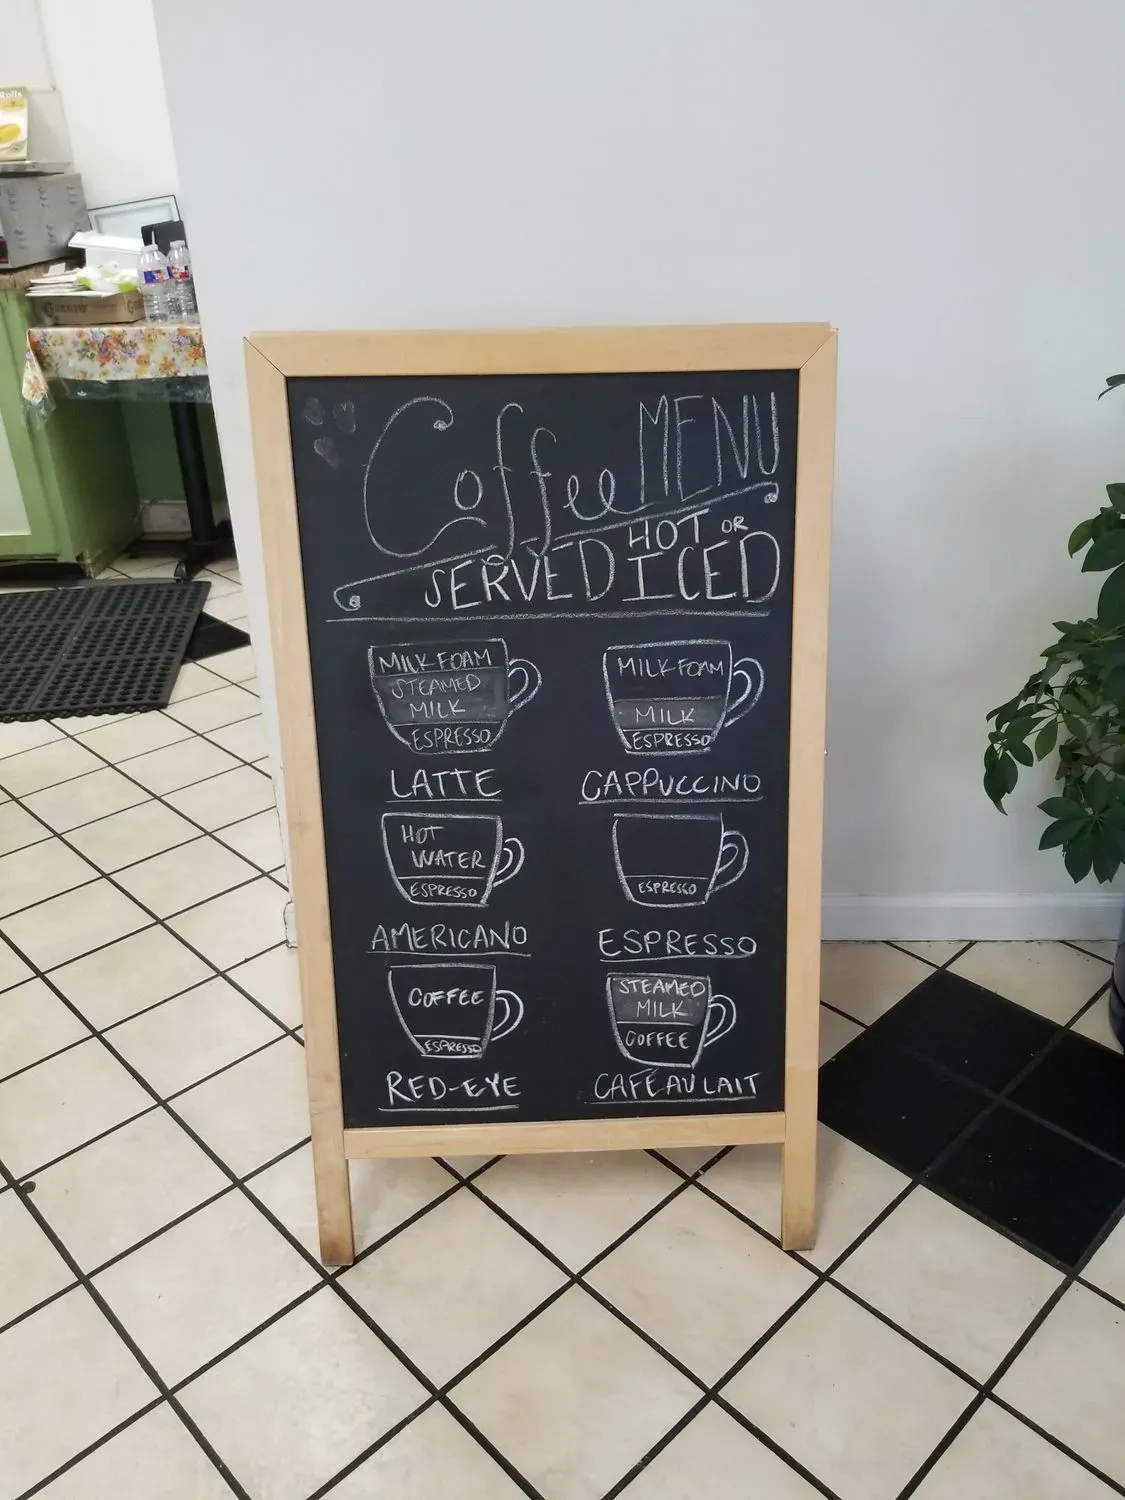 Rolls
Coffee MENU
SERVED HOT OR
ICED
MILK FOAM
STEAMED
MILK
ESPRESSO
LATTE
MILK FOAM
MILK
ESPRESSO
CAPPUCCINO
HOT
WATER
ESPRESSO
AMERICANO
ESPRESSO
ESPRESSO
COFFEE
ESPRESSO
RED-EYE
STEAMED
MILK
COFFEE
CAFÉ AU LAIT